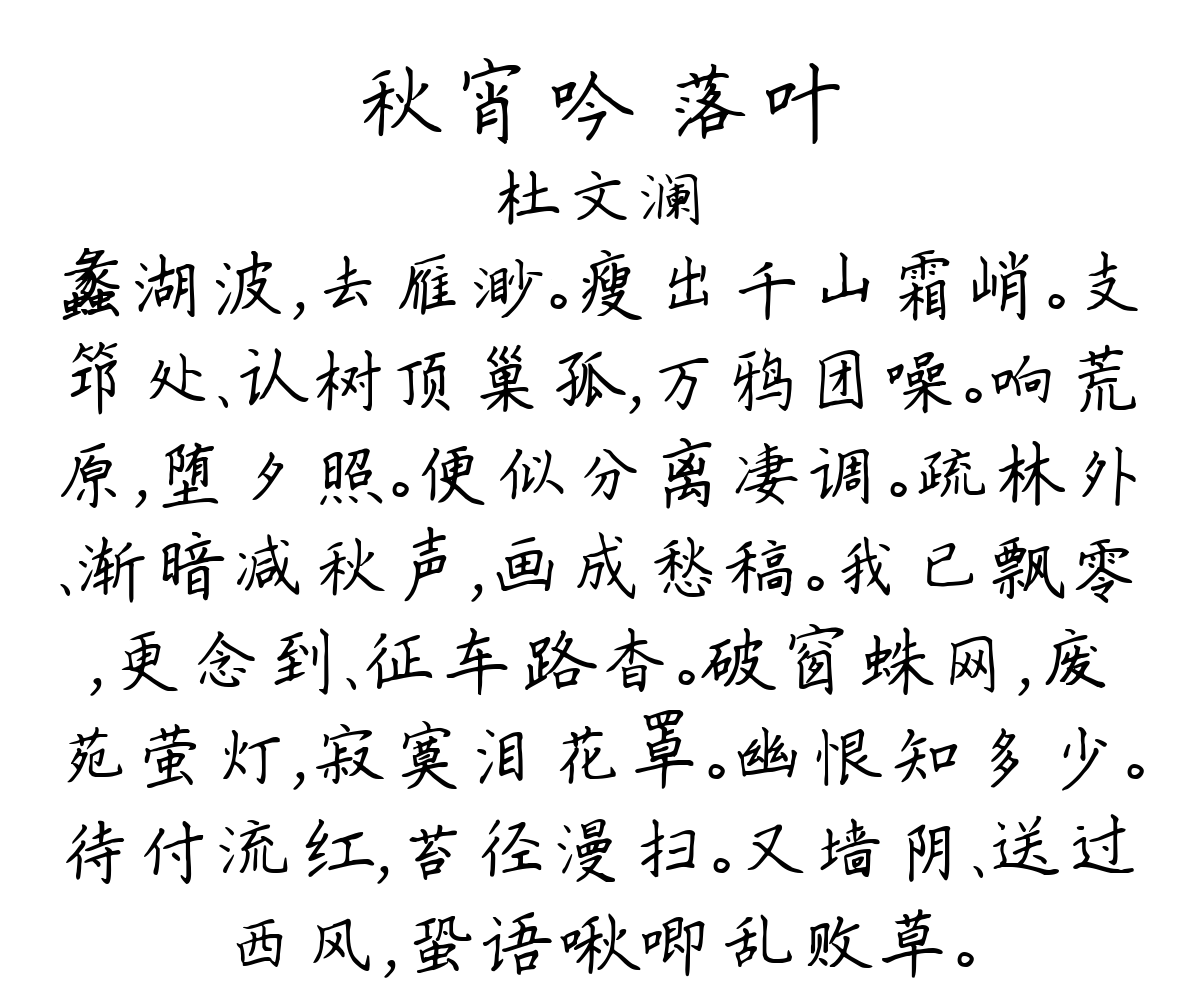 秋宵吟 落叶
杜文澜
蠡湖波,去雁渺。瘦出千山霜峭。支
筇处、认树顶巢孤,万鸦团噪。响荒
原,堕夕照。便似分离凄调。疏林外
、渐暗减秋声,画成愁稿。我已飘零
,更念到、征车路杳。破窗蛛网,废
苑萤灯,寂寞泪花罩。幽恨知多少。
待付流红,苔径漫扫。又墙阴、送过
西风,蛩语啾唧乱败草。